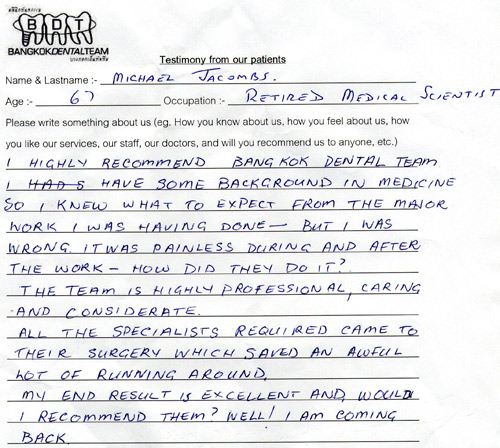 คลินิกทันตกรรม
BDT
BANGKOKDENTALTEAM
Testimony from our patients
Name & Lastname :- MICHAEL JACOMBS.
Age :- 67 Occupation :- RETIRED MEDICAL SCIENTIST
Please write something about us (eg. How you know about us, how you feel about us, how
you like our services, our staff, our doctors, and will you recommend us to anyone, etc.)
I HIGHLY RECOMMEND BANGKOK DENTAL TEAM
I HAD S HAVE SOME BACKGROUND IN MEDICINE
SO I KNEW WHAT TO EXPECT FROM THE MAJOR
WORK I WAS HAVING DONE — BUT I WAS
WRONG. IT WAS PAINLESS DURING AND AFTER
THE WORK — HOW DID THEY DO IT?
THE TEAM IS HIGHLY PROFESSIONAL, CARING
AND CONSIDERATE.
ALL THE SPECIALISTS REQUIRED CAME TO
THEIR SURGERY WHICH SAVED AN AWFUL
LOT OF RUNNING AROUND.
MY END RESULT IS EXCELLENT AND, WOULD
I RECOMMEND THEM? WELL! I AM COMING
BACK.